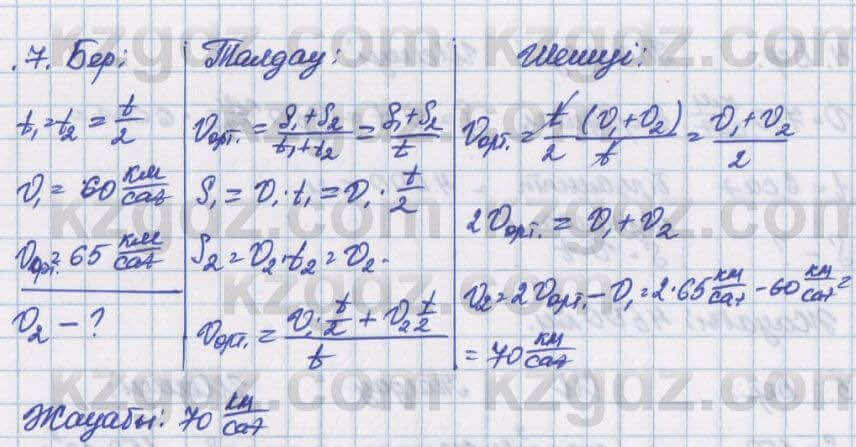 7. Бер:
t₁ = t₂ = t/2
v₁ = 60 км/сағ
vорт. = 65 км/сағ
v₂ - ?
Талдау:
vорт. = (S₁ + S₂)/(t₁ + t₂) = (S₁ + S₂)/t
S₁ = v₁ · t₁ = v₁ · t/2
S₂ = v₂ · t₂ = v₂ ·
vорт. = (v₁ · t/2 + v₂ t/2)/t
Шешуі:
vорт. = t/2 (v₁ + v₂)/t = (v₁ + v₂)/2
2vорт. = v₁ + v₂
v₂ = 2vорт. - v₁ = 2 · 65 км/сағ - 60 км/сағ =
= 70 км/сағ
Жауабы: 70 км/сағ
kzgdz.com